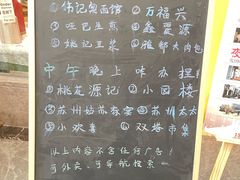 ①伟记奥面馆 ②万福兴
③哑巴生煎 ④鑫震源
⑤姚记豆浆 ⑥雅都大肉包
中午晚上咔赤捏
①桃花源记 ②小园楼
③苏州姑苏家宴 ④苏州太太
⑤小欢喜 ⑥双塔市集
以上内容不含任何广告!
可外卖、可导航搜索~